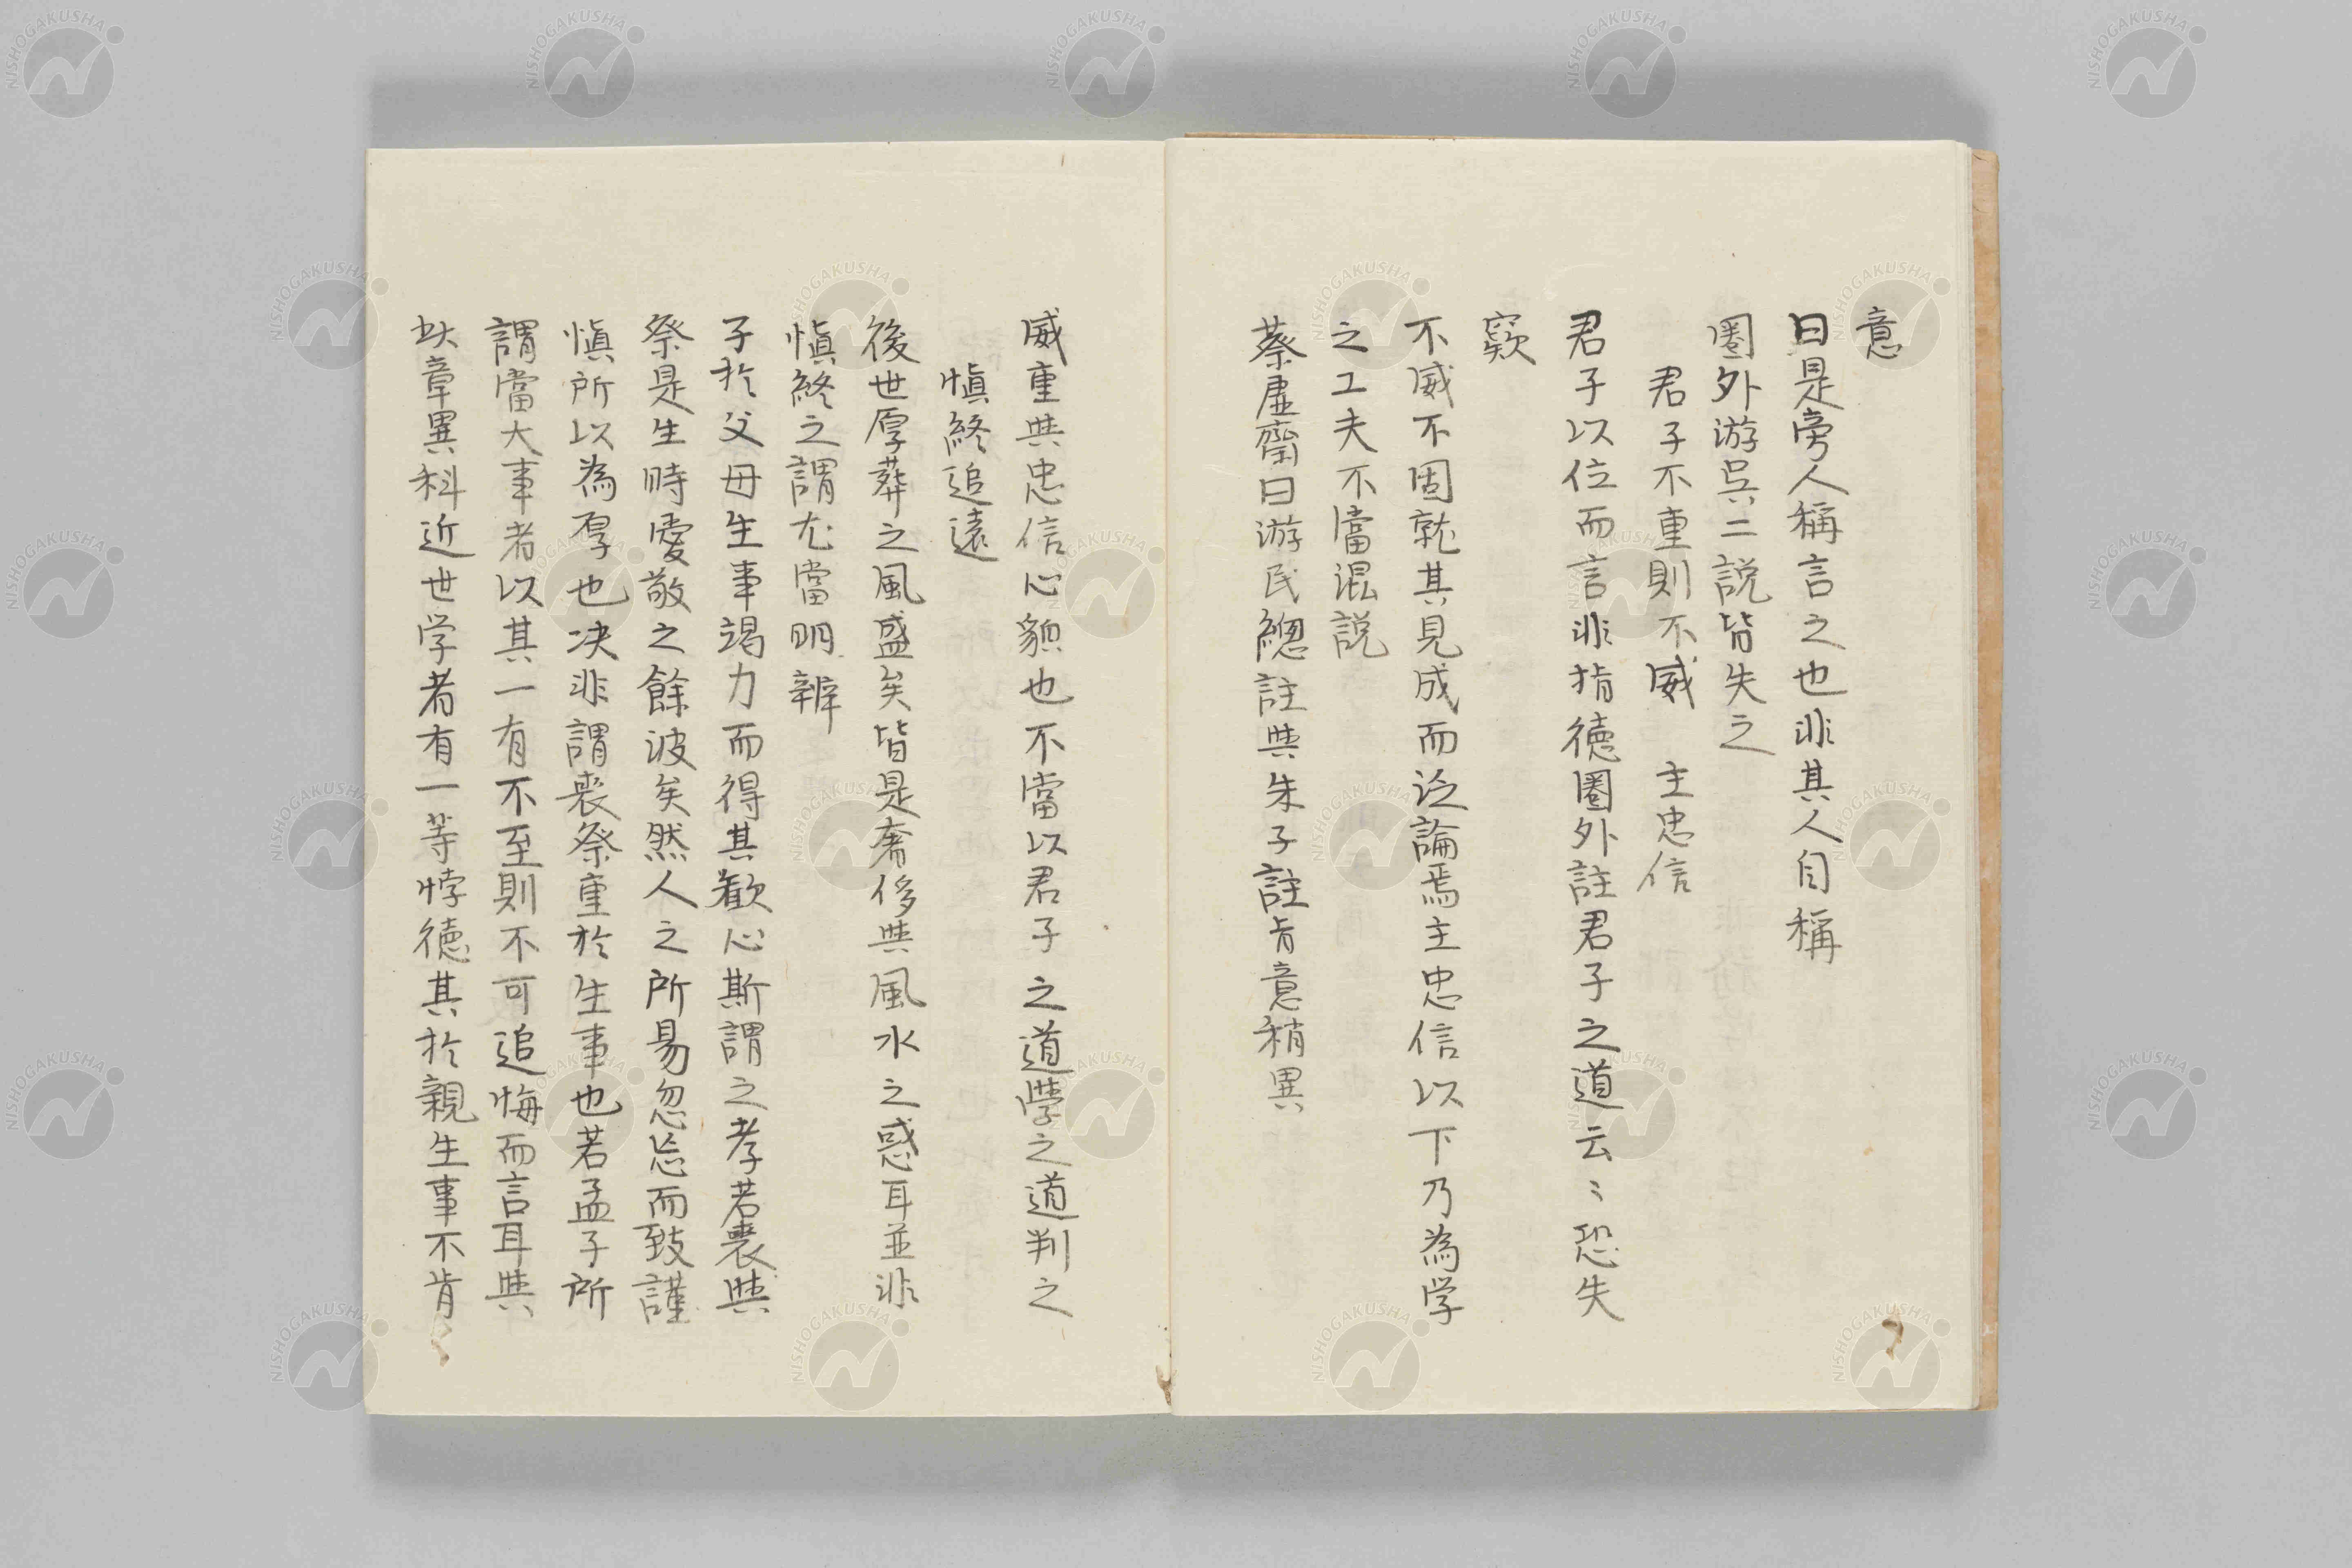 意
曰是旁人稱言之也非其人自稱
圏外游呉二説皆失之
君子不重則不威　主忠信
君子以位而言非指徳圏外註君子之道云〻恐失
窾
不威不固就其見成而泛論焉主忠信以下乃為学
之工夫不當混説
蔡虚齋曰游氏總註與朱子註旨意稍異
威重與忠信心貌也不當以君子之道學之道判之
慎終追遠
後世厚葬之風盛矣皆是奢侈與風水之惑耳並非
慎終之謂尤當明辨
子於父母生事竭力而得其歓心斯謂之孝若喪與
祭是生時愛敬之餘波矣然人之所易忽忘而致謹
慎所以為厚也决非謂喪祭重於生事也若孟子所
謂當大事者以其一有不至則不可追悔而言耳與
此章異科近世学者有一等悖徳其於親生事不肯
NISHOGAKUSHA